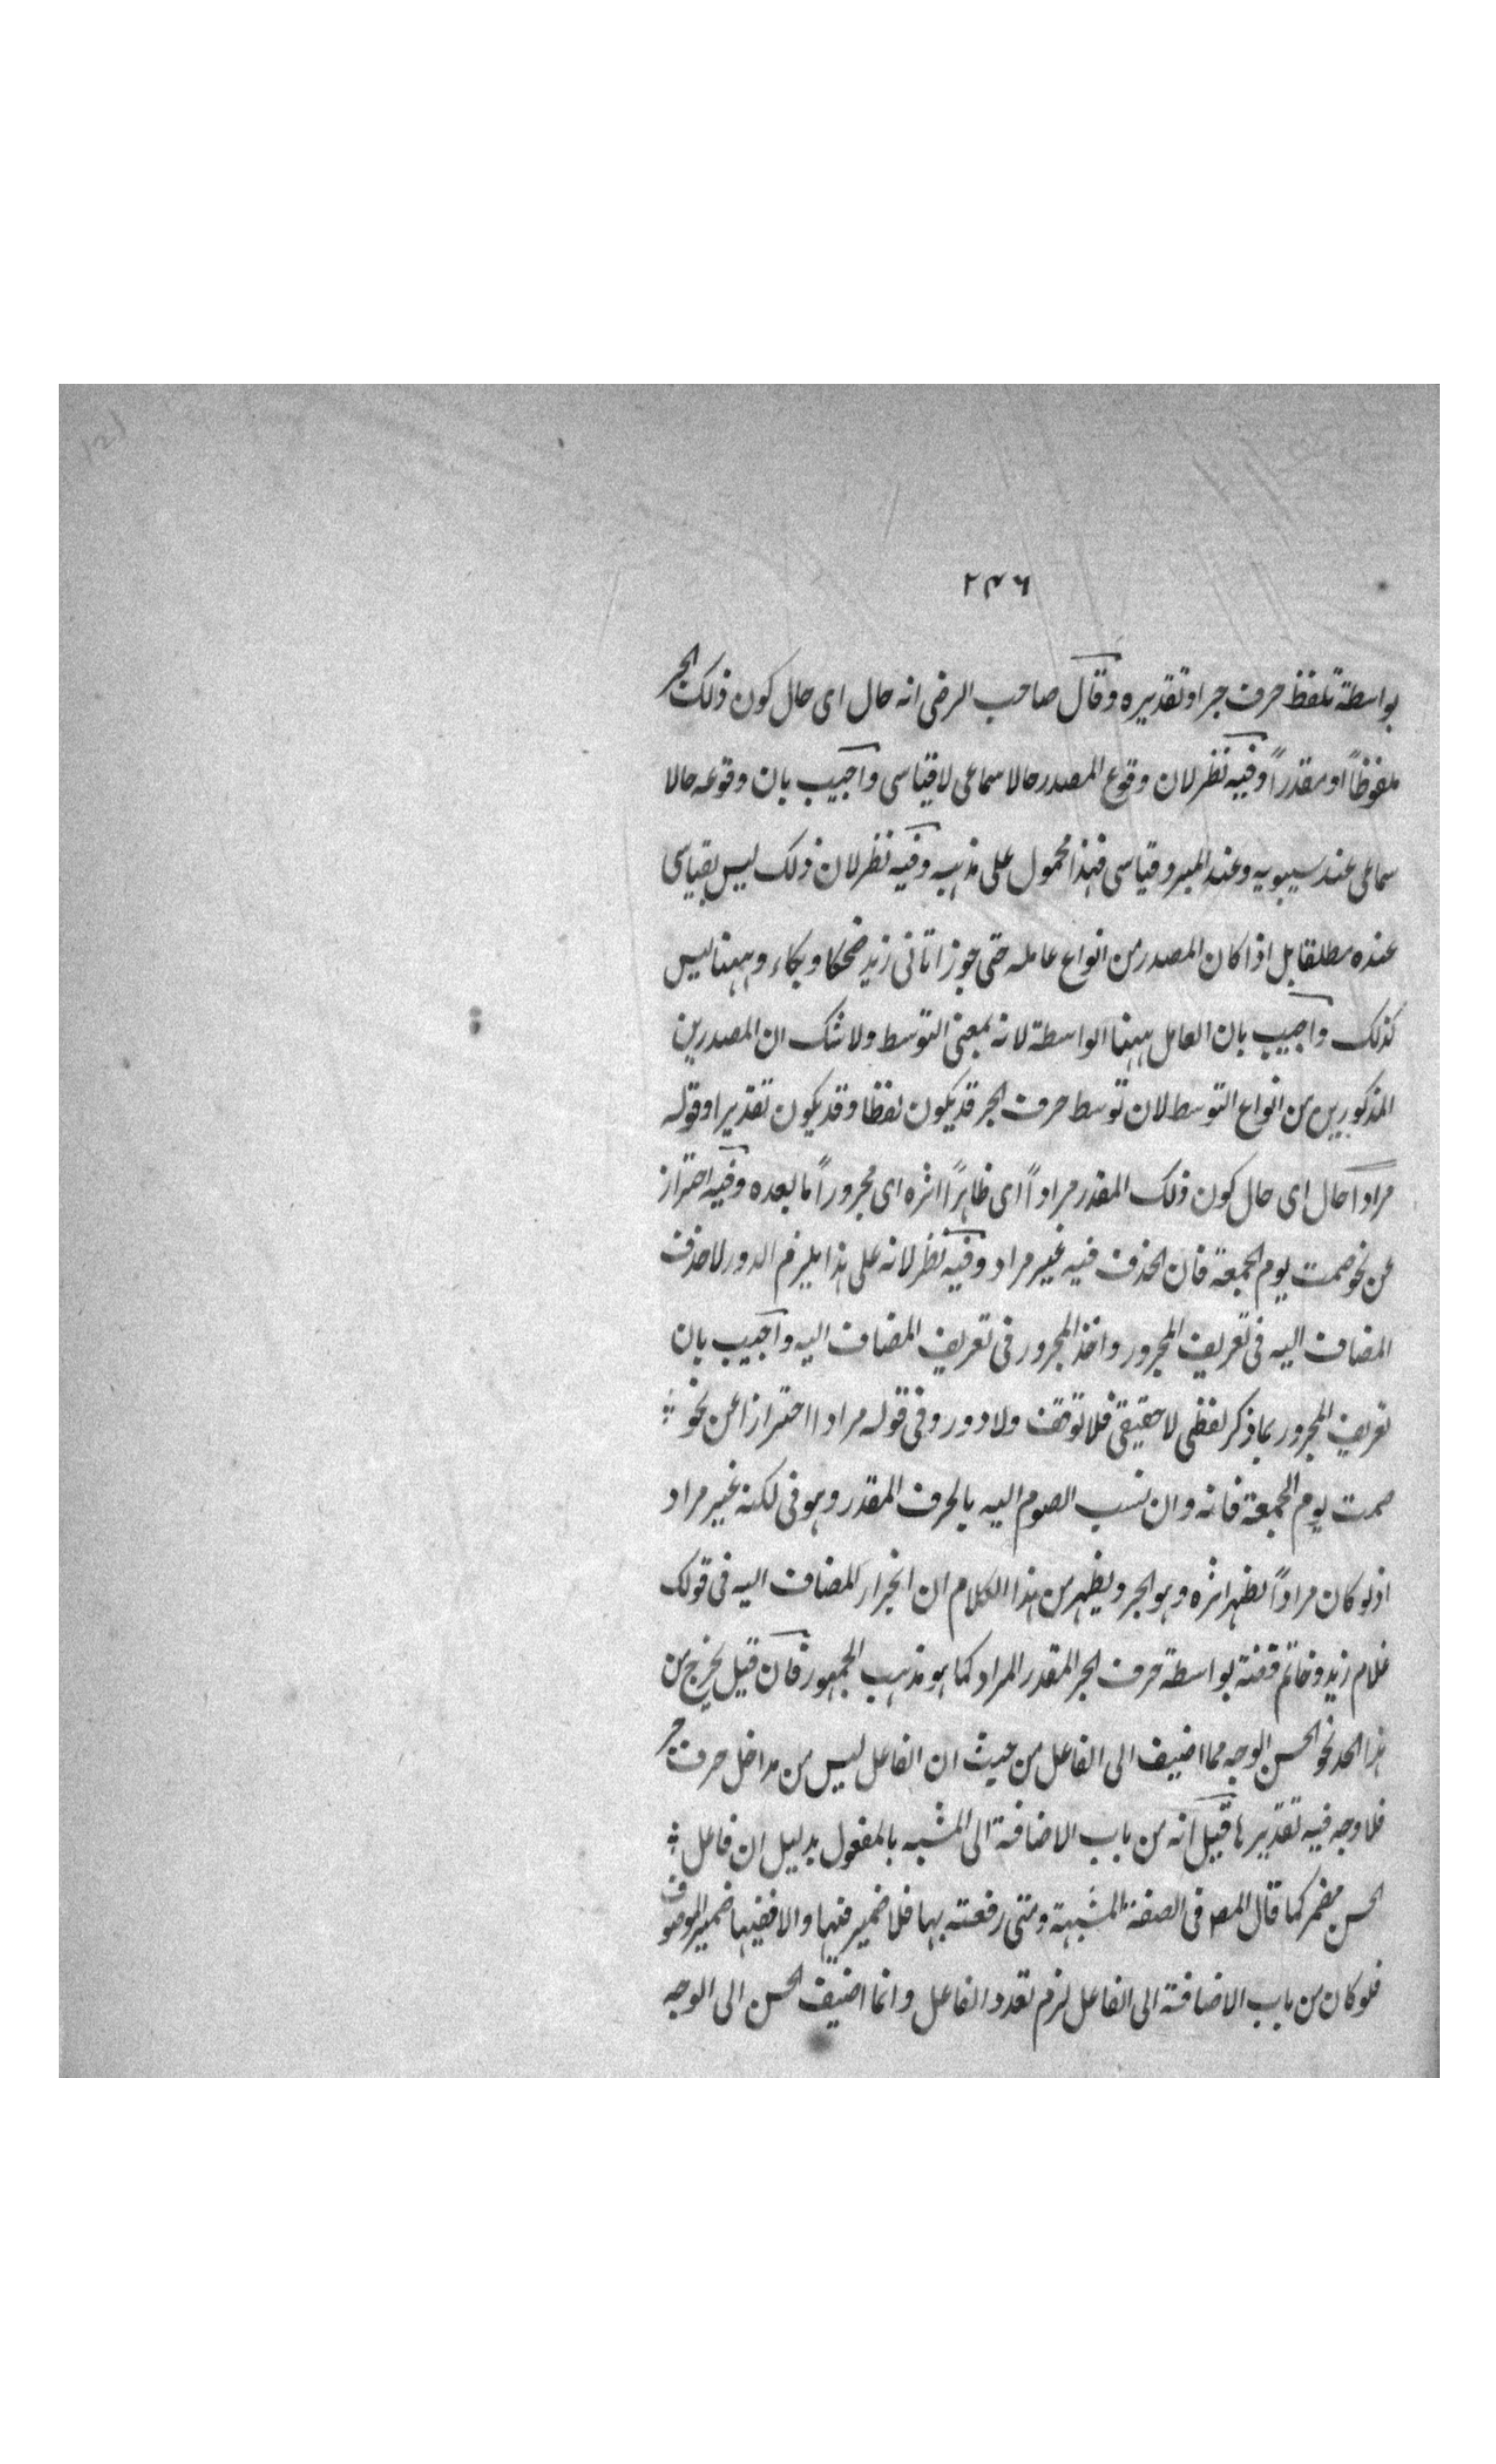 ٢٤٦
بواسطة تلفظ حرف جر او تقديره وقال صاحب الرضى انه حال اى حال كون ذلك الجر
ملفوظاً او مقدراً وفيه نظر لان وقوع المصدر حالا سماعى لا قياسى واجيب بان وقوعه حالا
سماعى عند سيبويه وعند المبرد قياسى فهذا محمول على مذهبه وفيه نظر لان ذلك ليس بقياسى
عنده مطلقا بل اذا كان المصدر من انواع عامله حتى جوز اتانى زيد ضحكا وبكاء وههنا ليس
كذلك واجيب بان العامل ههنا الواسطة لانه بمعنى التوسط ولا شك ان المصدرين
المذكورين من انواع التوسط لان توسط حرف الجر قد يكون لفظا وقد يكون تقديرا وقوله
مرادا حال اى حال كون ذلك المقدر مراداً اى ظاهراً اثره اى مجروراً ما بعده وفيه احتراز
عن نحو صمت يوم الجمعة فان الحذف فيه غير مراد وفيه نظر لانه على هذا يلزم الدور لاخذ
المضاف اليه فى تعريف المجرور واخذ المجرور فى تعريف المضاف اليه واجيب بان
تعريف المجرور بما ذكر لفظى لا حقيقى فلا توقف ولا دور وفى قوله مرادا احترازا عن نحو
صمت يوم الجمعة فانه وان نسب الصوم اليه بالحرف المقدر وهو فى لكنه غير مراد
اذ لو كان مراداً لظهر اثره وهو الجر ويظهر من هذا الكلام ان انجرار المضاف اليه فى قولك
غلام زيد وخاتم فضة بواسطة حرف الجر المقدر المراد كما هو مذهب الجمهور فان قيل يخرج من
هذا الحد نحو الحسن الوجه مما اضيف الى الفاعل من حيث ان الفاعل ليس من مداخل حرف جر
فلا وجه فيه تقديرها قيل انه من باب الاضافة الى المشبه بالمفعول بدليل ان فاعل
الحسن مضمر كما قال المص فى الصفة المشبهة ومتى رفعت بها فلا ضمير فيها والا ففيها ضمير الموصوف
فلو كان من باب الاضافة الى الفاعل لزم تعدد الفاعل وانما اضيف الحسن الى الوجه